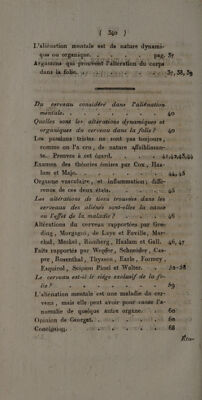 ( 340 )
L'aliénation mentale est de nature dynami-
que ou organique. . . . . pag. 37
Argumens qui prouvent l'altération du corps
dans la folie. . . . . 37, 38, 39
Du cerveau considéré dans l'aliénation
mentale. . . . . 40
Quelles sont les altérations dynamiques et
organiques du cerveau dans la folie ? 40
Les passions tristes ne sont pas toujours,
comme on l'a cru, de nature affaiblissan-
te. Preuves à cet égard. . . . 41,42,43,44
Examen des théories émises par Cox, Has-
lam et Mayo. . . . . 44, 45
Orgasme vasculaire, et inflammation; diffé-
rence de ces deux états. . . . 45
Les altérations de tissu trouvées dans les
cerveaux des aliénés sont-elles la cause
ou l'effet de la maladie ? . . . 46
Altérations du cerveau rapportées par Gre-
ding, Morgagni, de Laye et Foville, Mar-
chal, Meckel, Romberg, Haslam et Gall. 46, 47
Faits rapportés par Wepfer, Schneider, Cas-
per, Rosenthal, Thyssen, Earle, Formey,
Esquirol, Scipion Pinel et Walter. . . 52-58
Le cerveau est-il le siège exclusif de la fo-
lie ? . . . . . 59
L'aliénation mentale est une maladie du cer-
veau, mais elle peut avoir pour cause l'a-
nomalie de quelque autre organe. . . 60
Opinion de Georget. . . . . 60
Conclusion. . . . . 68